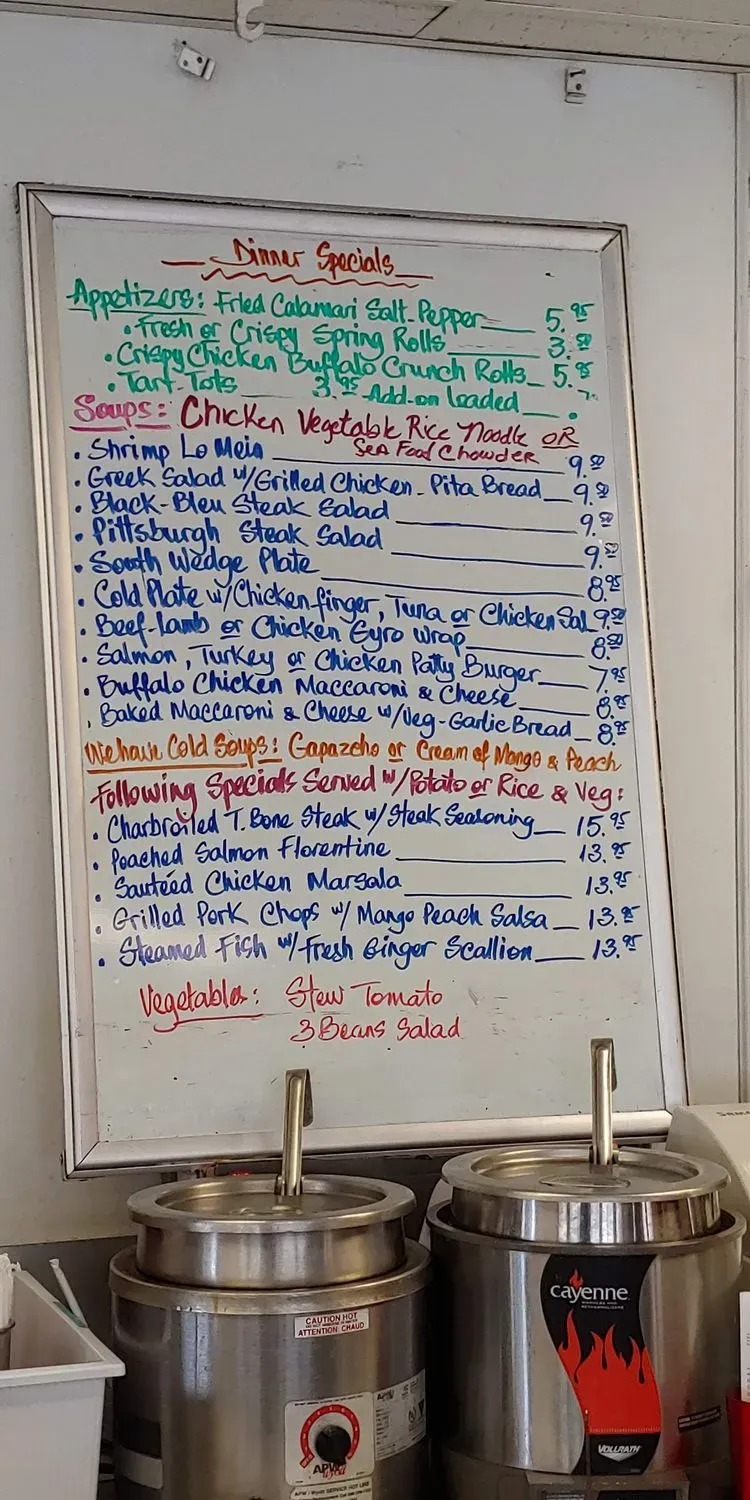 Dinner Specials
Appetizers: Fried Calamari Salt-Pepper 5.95
• Fresh or Crispy Spring Rolls 3.50
• Crispy Chicken Buffalo Crunch Rolls 5.95
• Tart-Tots 3.95 Add-on loaded
Soups: Chicken Vegetable Rice Noodle OR
Sea Food Chowder
• Shrimp Lo Mein 9.50
• Greek Salad w/Grilled Chicken - Pita Bread 9.50
• Black-Bleu Steak Salad 9.50
• Pittsburgh Steak Salad 9.50
• South Wedge Plate 8.95
• Cold Plate w/Chicken finger, Tuna or Chicken Sal 9.50
• Beef-lamb or Chicken Gyro wrap 8.50
• Salmon, Turkey or Chicken Patty Burger 7.95
• Buffalo Chicken Maccaroni & Cheese 8.95
• Baked Maccaroni & Cheese w/Veg-Garlic Bread 8.95
We have Cold Soups: Gapazcho or Cream of Mango & Peach
Following Specials Served w/Potato or Rice & Veg:
• Charbroiled T.Bone Steak w/Steak Seasoning 15.95
• Poached Salmon Florentine 13.95
• Sautéed Chicken Marsala 13.95
• Grilled Pork Chops w/ Mango Peach Salsa 13.95
• Steamed Fish w/Fresh Ginger Scallion 13.95
Vegetables: Stew Tomato
3 Beans Salad
CAUTION HOT
ATTENTION: CHAUD
APW
cayenne
VOLLRATH